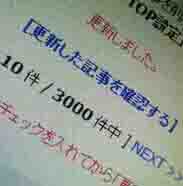 TOP設定
更新しました。
[更新した記事を確認する]
10 件 / 3000 件中 ] NEXT >>
チェックを入れてから「更